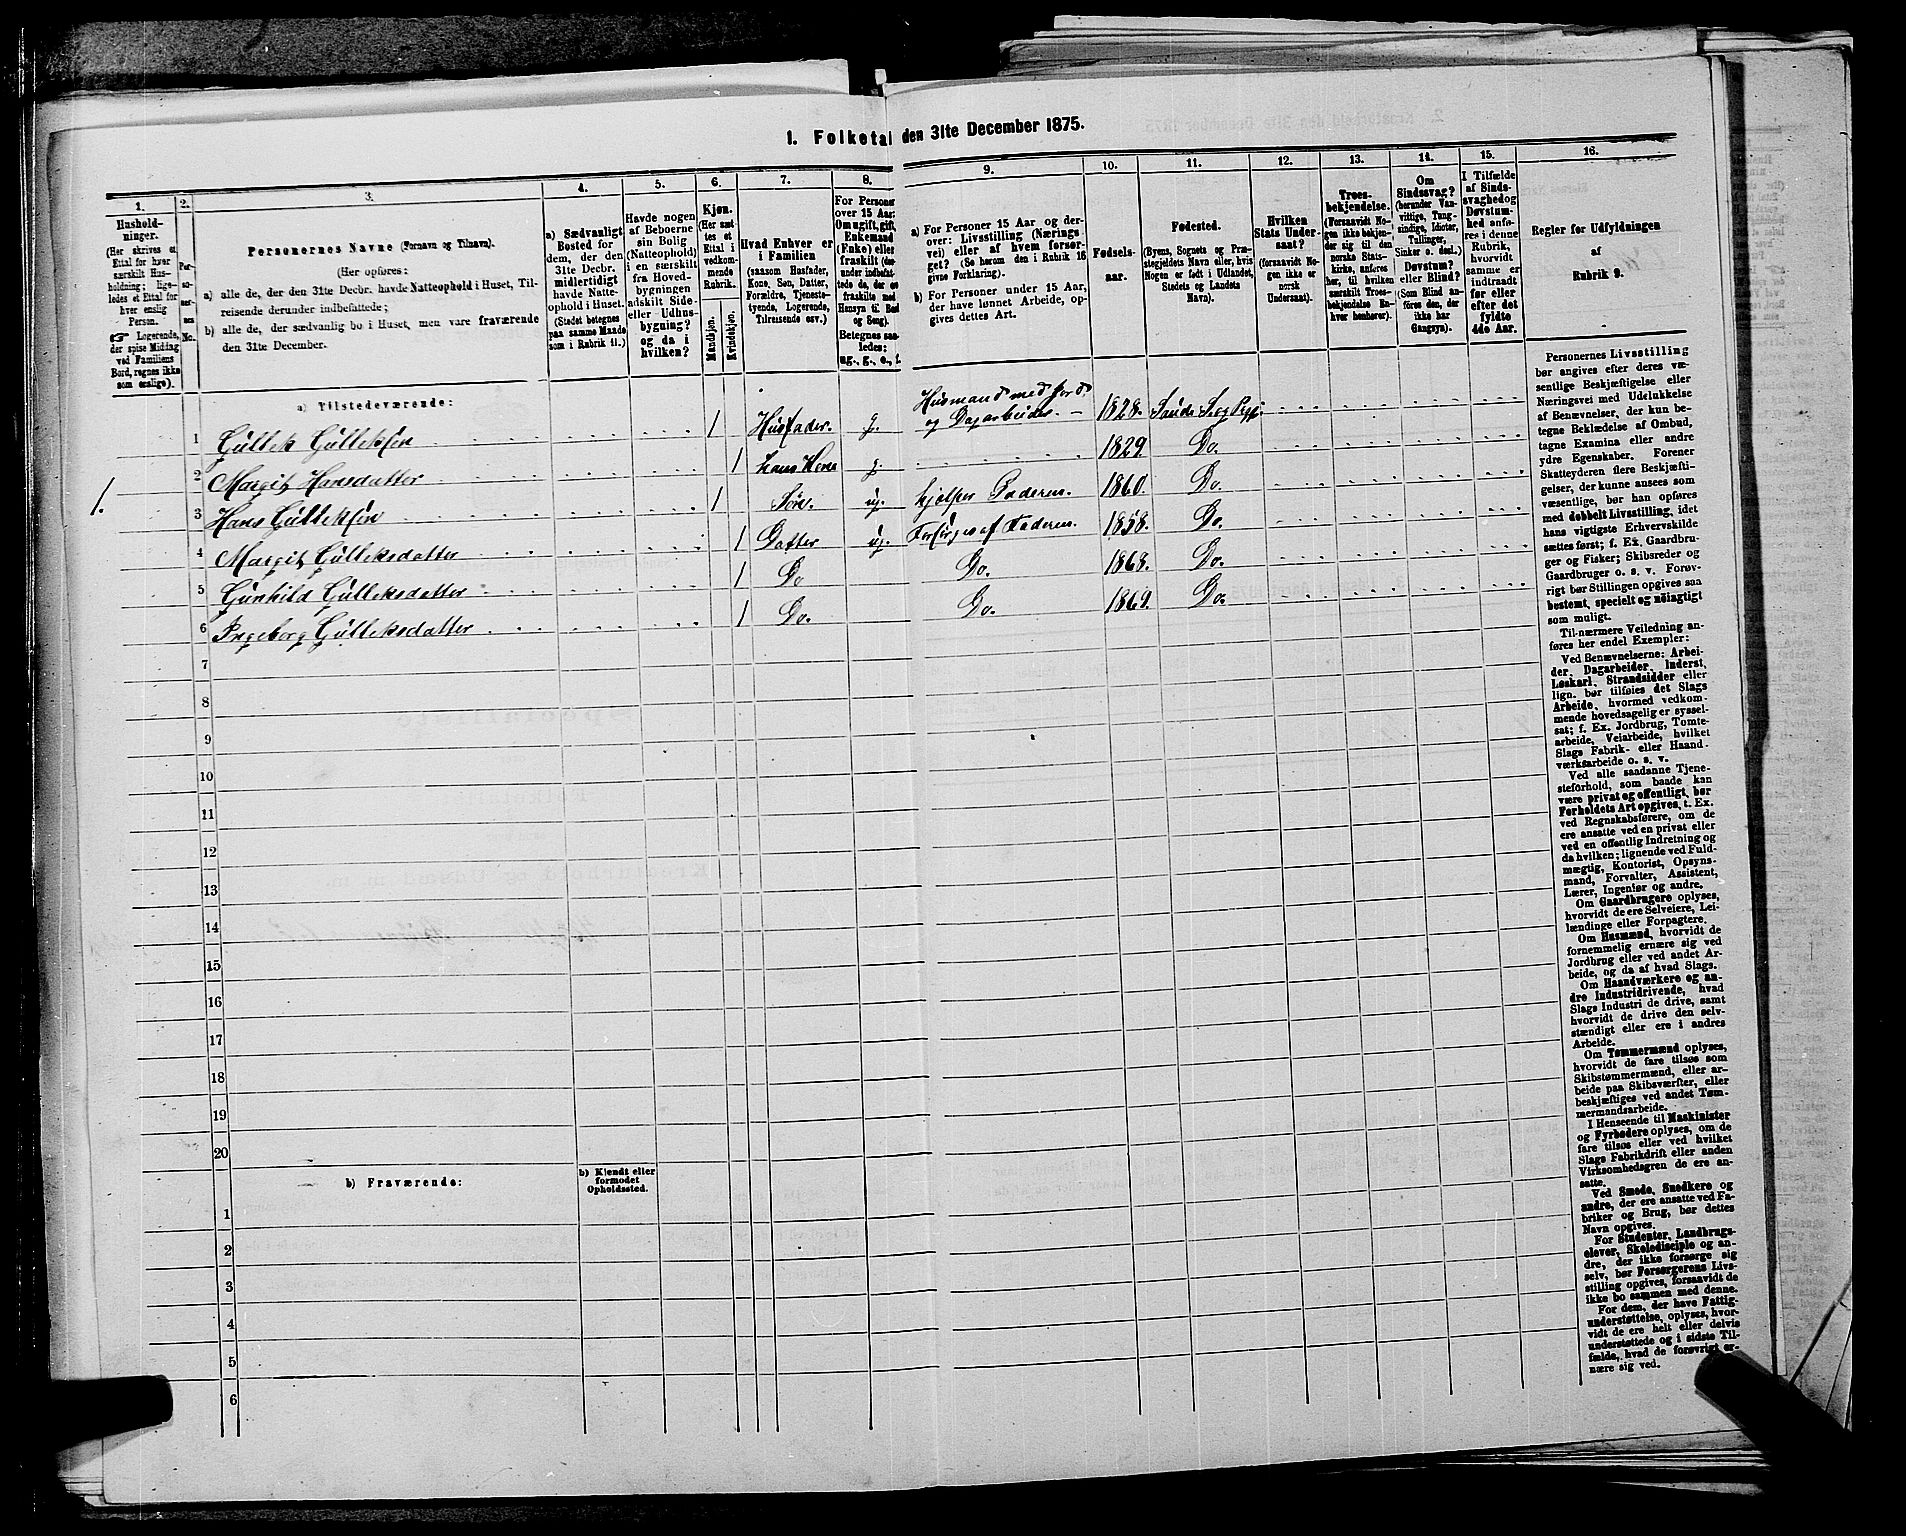 1. Folketal den 31te December 1875.
1.
2.
3.
4.
5.
6.
7.
8.
9.
10.
11.
12.
13.
14.
15.
16.
Hushold-
ninger.
(Her skrives et
Ettal for hver
særskilt Hus-
holdning; lige-
ledes et Ettal for
hver enslig
Person.
☞ Logerende,
der spise Middag
ved Familiens
Bord, regnes ikke
som enslige).
Per-
so-
ner-
nes
No.
Personernes Navne (Fornavn og Tilnavn).
(Her opføres:
a) alle de, der den 31te Decbr. havde Natteophold i Huset, Til-
reisende derunder indbefattede;
b) alle de, der sædvanlig bo i Huset, men vare fraværende
den 31te December.
a) Sædvanligt
Bosted for
dem, der den
31te Decbr.
midlertidigt
havde Natte-
ophold i Huset.
(Stedet betegnes
paa samme Maade
som i Rubrik 11.)
Havde nogen
af Beboerne
sin Bolig
(Natteophold)
i en særskilt
fra Hoved-
bygningen
adskilt Side-
eller Udhus-
bygning?
og da i
hvilken?
Kjøn.
(Her sæt-
tes et
Ettal i
vedkom-
mende
Rubrik.
Mandkjøn.
Kvindekjøn.
Hvad Enhver er
i Familien
(saasom Husfader,
Kone, Søn, Datter,
Forældre, Tjeneste-
tyende, Logerende,
Tilreisende osv.)
For Personer
over 15 Aar:
Om ugift, gift,
Enkemand
(Enke) eller
fraskilt (der-
under indbefat-
tede de, der ere
fraskilte med
Hensyn til Bord
og Seng).
Betegnes saa-
ledes:
ug., g., e., f.
a) For Personer 15 Aar og der-
over: Livsstilling (Nærings-
vei) eller af hvem forsør-
get? (Se herom den i Rubrik 16
givne Forklaring).
b) For Personer under 15 Aar,
der have lønnet Arbeide, op-
gives dettes Art.
Fødsels-
aar.
Fødested.
(Byens, Sognets og Præ-
stegjeldets Navn eller, hvis
Nogen er født i Udlandet,
Stedets og Landets
Navn).
Hvilken
Stats Under-
saat?
(forsaavidt No-
gen ikke er
norsk
Undersaat).
Troes-
bekjendelse.
(Forsaavidt No-
gen ikke bekjen-
der sig til den
norske Stats-
kirke, anføres
her, til hvilken
særskilt Troes-
bekjendelse En-
hver henhører).
Om
Sindssvag?
(herunder Van-
vittige, Tung-
sindige, Idioter,
Tullinger,
Sinker o. desl.)
Døvstum?
eller Blind?
(Som Blind an-
føres den, der
ikke har
Gangsyn).
I Tilfælde
af Sinds-
svaghed og
Døvstum-
hed anfø-
res i denne
Rubrik,
hvorvidt
samme er
indtraadt
før eller
efter det
fyldte
4de Aar.
Regler for Udfyldningen
af
Rubrik 9.
a) Tilstedeværende:
1. 1 Gullek Gulleksen 1 Husfader. g. Husmand med Jord og Dagarbeider. 1828.
2 Margit Hansdatter 1 hans Kone g. 1829. Do.
3 Hans Gulleksen 1 Søn. ug. hjelper Faderen. 1860. Do.
4 Margit Gulleksdatter 1 Datter ug. Forsørges af Faderen. 1858. Do.
5 Gunhild Gulleksdatter 1 Do Do. 1868. Do.
6 Ingeborg Gulleksdatter 1 Do. Do. 1869. Do.
7
8
9
10
11
12
13
14
15
16
17
18
19
20
b) Fraværende:
b) Kjendt eller
formodet
Opholdssted.
1
2
3
4
5
6
Personernes Livsstilling
bør angives efter deres væ-
sentlige Beskjæftigelse eller
Næringsvei med Udelukkelse
af Benævnelser, der kun be-
tegne Beklædelse af Ombud,
tagne Examina eller andre
ydre Egenskaber. Forener
Skatteyderen flere Beskjæfti-
gelser, der kunne ansees som
væsentlige, bør han opføres
med dobbelt Livsstilling, idet
hans vigtigste Erhvervskilde
sættes først; f. Ex. Gaardbru-
ger og Fisker; Skibsreder og
Gaardbruger o. s. v. Forøv-
rigt bør Stillingen opgives saa
bestemt, specielt og nøiagtigt
som muligt.
Til nærmere Veiledning an-
føres her endel Exempler:
Ved Benævnelserne: Arbei-
der, Dagarbeider, Inderst,
Løskarl, Strandsidder eller
lign. bør tilføies det Slags
Arbeide, hvormed vedkom-
mende hovedsagelig er syssel-
sat; f. Ex. Jordbrug, Tomte-
arbeide, Veiarbeide, hvilket
Slags Fabrik- eller Haand-
værksarbeide o. s. v.
Ved alle saadanne Tjene-
steforhold, som baade kan
være privat og offentligt, bør
Forholdets Art opgives, t. Ex.
ved Regnskabsførere, om de
ere ansatte ved en privat eller
ved en offentlig Indretning og
da hvilken; lignende ved Fuld-
mægtig, Kontorist, Opsyns-
mand, Forvalter, Assistent,
Lærer, Ingeniør og andre.
Om Gaardbrugere oplyses,
hvorvidt de ere Selveiere, Lei-
lændinge eller Forpagtere.
Om Husmænd, hvorvidt de
fornemmelig ernære sig ved
Jordbrug eller ved andet Ar-
beide, og da af hvad Slags.
Om Haandværkere og an-
dre Industridrivende, hvad
Slags Industri de drive, samt
hvorvidt de drive den selv-
stændigt eller ere i andres
Arbeide.
Om Tømmermænd oplyses,
hvorvidt de fare tilsøs som
Skibstømmermænd, eller ar-
beide paa Skibsværfter, eller
beskjæftiges ved andet Tøm-
mermandsarbeide.
I Henseende til Maskinister
og Fyrbødere oplyses, om de
fare tilsøs eller ved hvilket
Slags Fabrikdrift eller anden
Virksomhedsgren de ere an-
satte.
Ved Smede, Snedkere og
andre, der ere ansatte ved Fa-
briker og Brug, bør dettes
Navn opgives.
For Studenter, Landbrugs-
elever, Skoledisciple og an-
dre, der ikke forsørge sig
selv, bør Forsørgerens Livs-
stilling opgives, forsaavidt de
ikke bo sammen med denne.
For dem, der have Fattig-
understøttelse, oplyses, hvor-
vidt de ere helt eller delvis
understøttede og i sidste Til-
fælde, hvad de forøvrigt er-
nære sig ved.